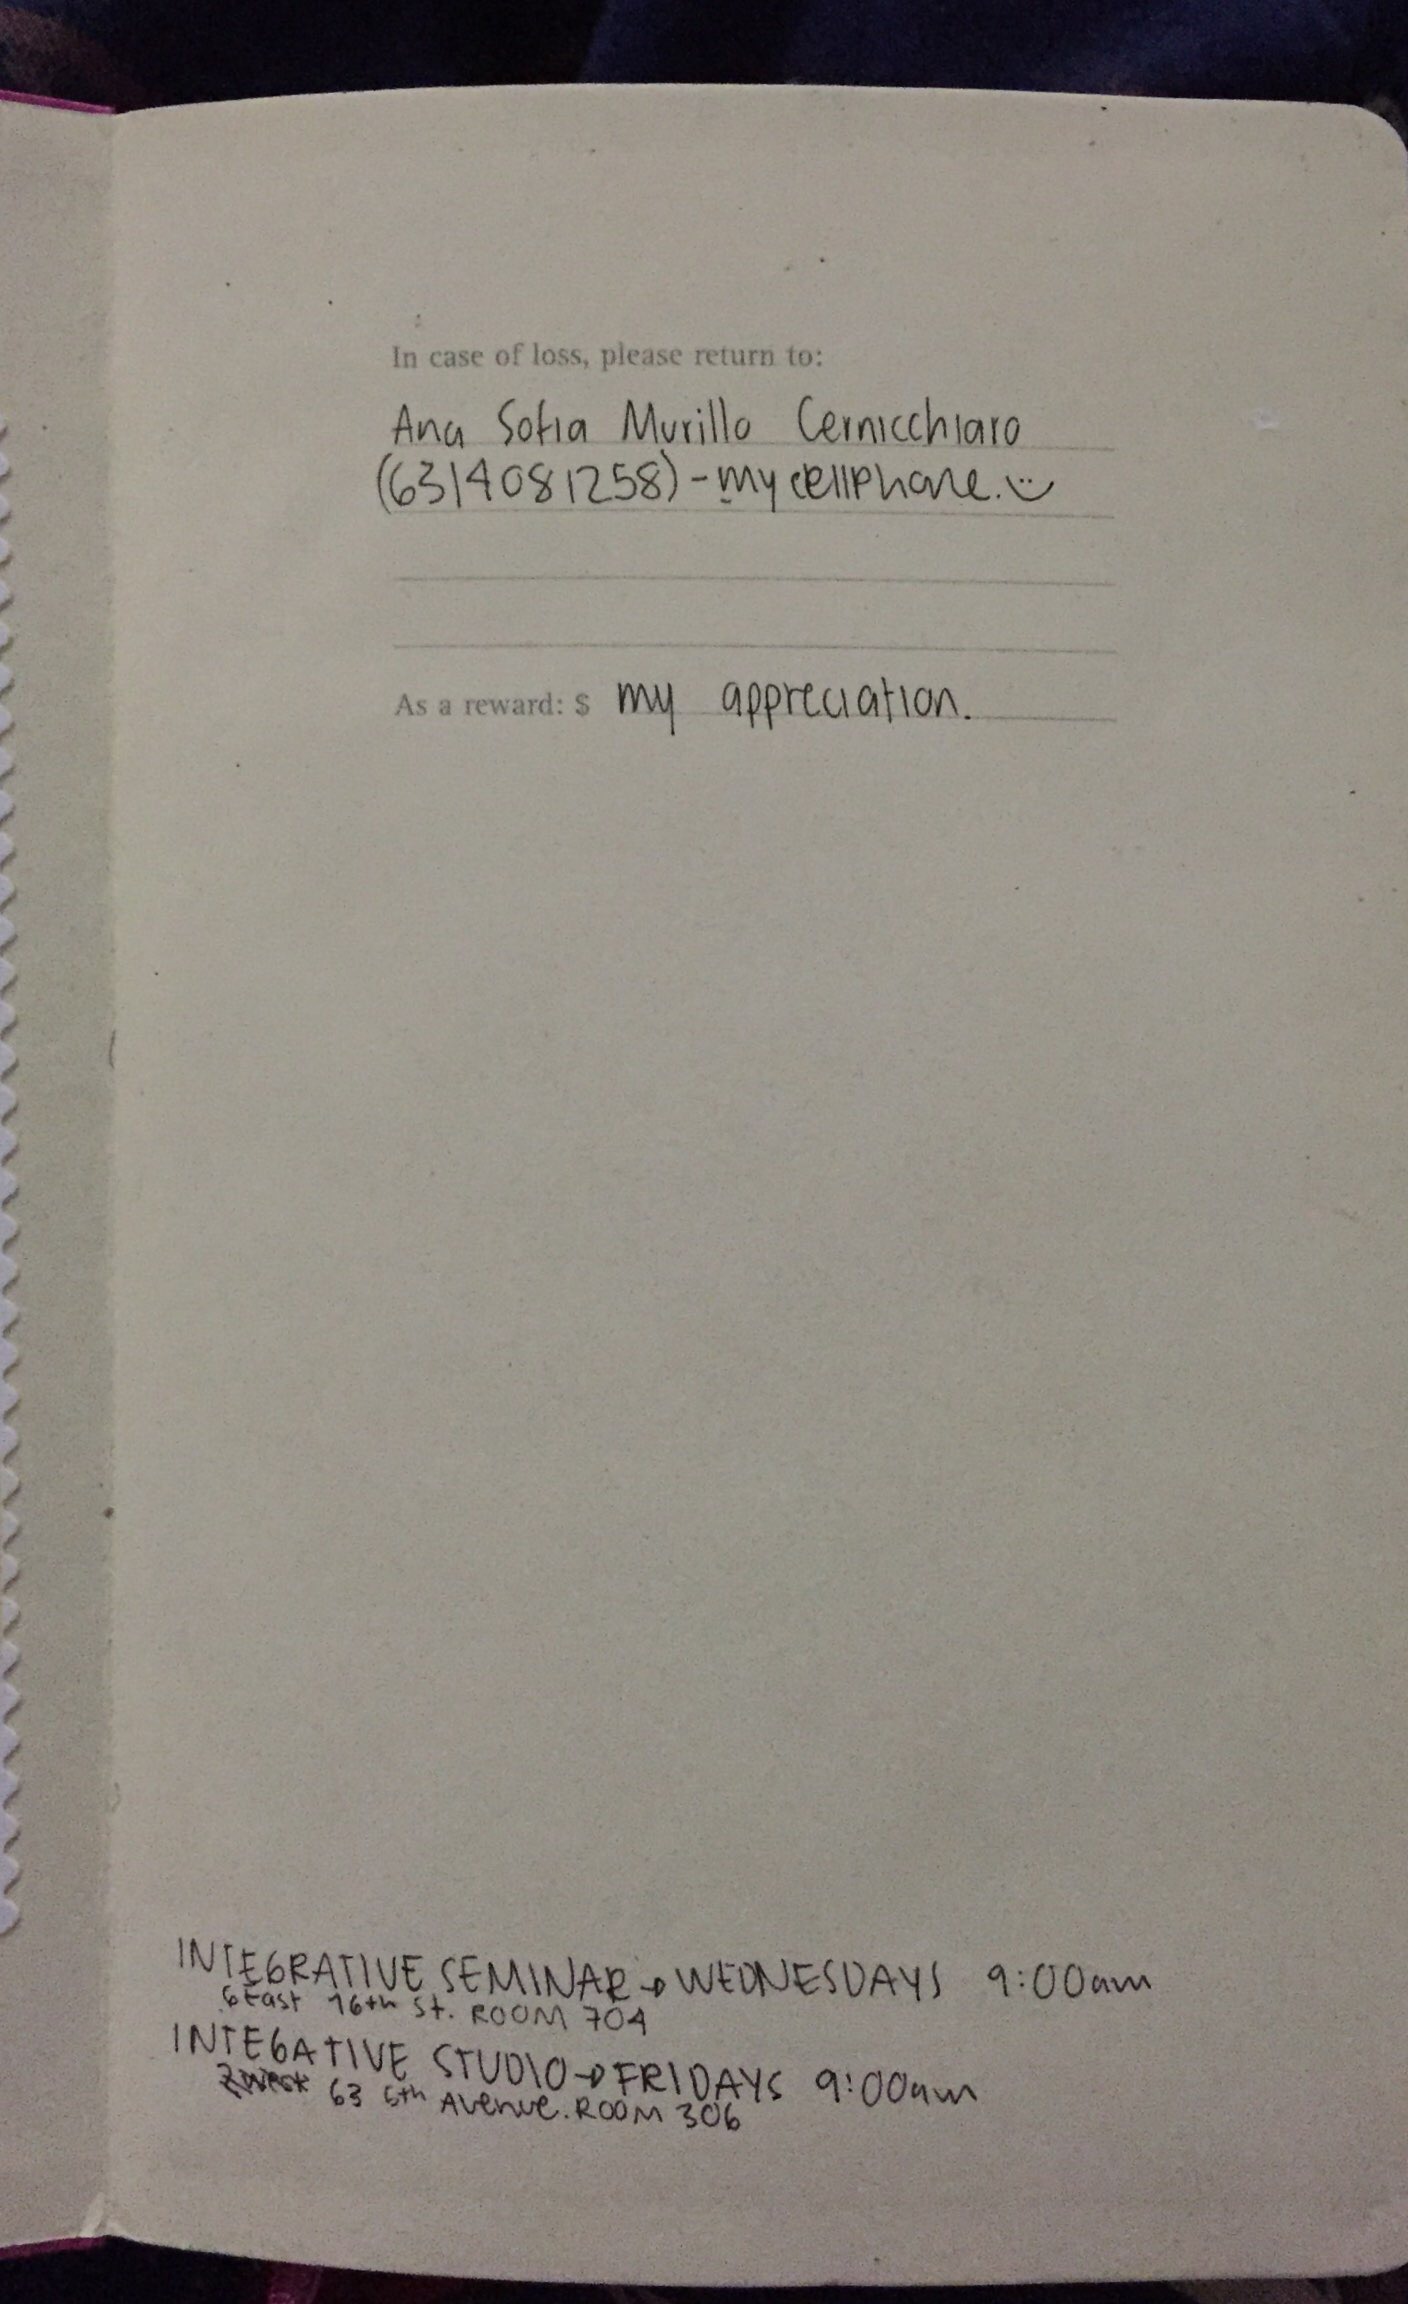 In case of loss, please return to:
Ana Sofia Murillo Cernicchiaro
(6314081258) - my cellphone. :)
As a reward: $ my appreciation.
INTEGRATIVE SEMINAR → WEDNESDAYS 9:00am
6 East 16th St. ROOM 704
INTEGATIVE STUDIO → FRIDAYS 9:00am
63 5th Avenue. ROOM 306